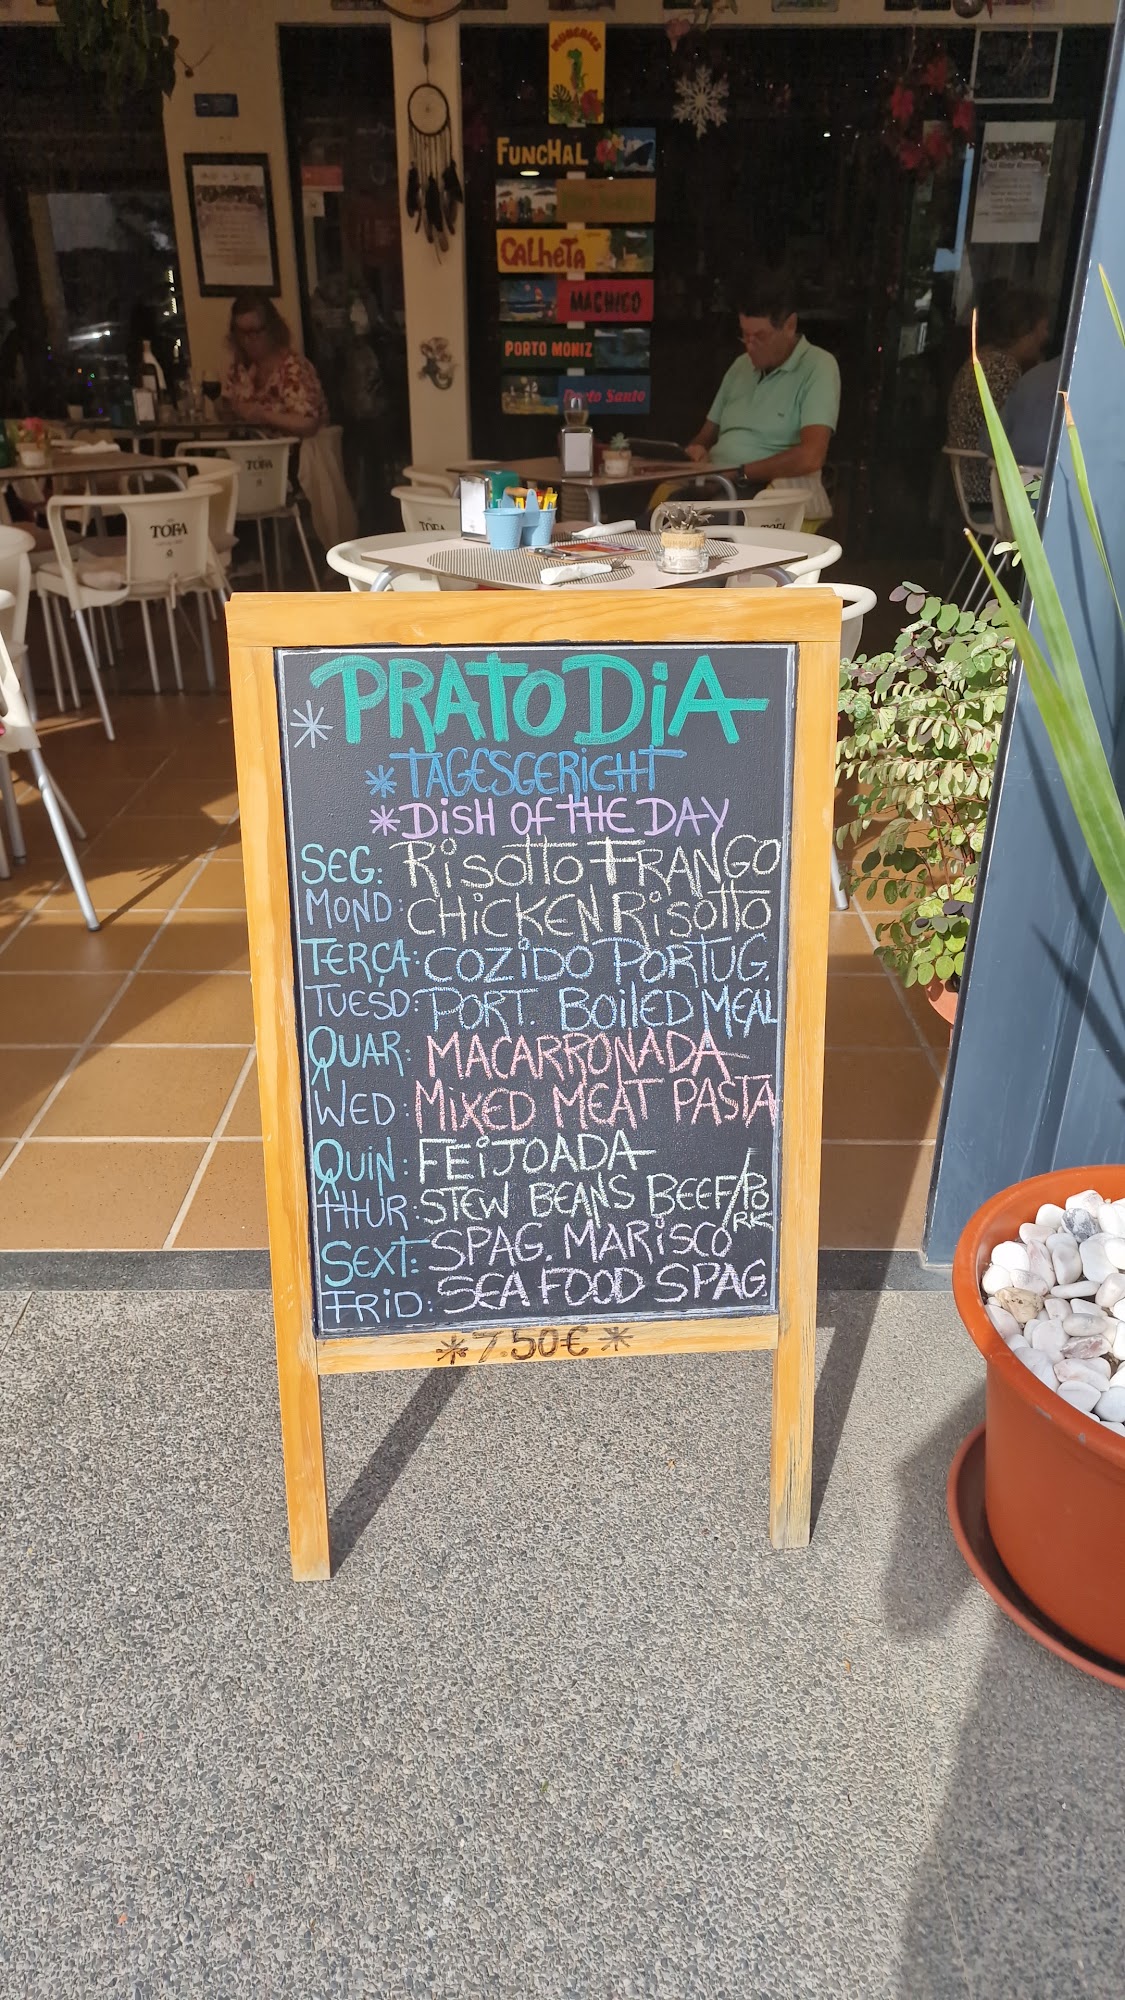 MUNCHIES
FUNCHAL
CALHETA
MACHICO
PORTO MONIZ
Porto Santo
TOFA
TOFA
TOFA
PRATO DiA
*TAGESGERICHT
*DiSH OF THE DAY
SEG: RiSOTTO FRANGO
MOND: CHiCKEN RiSOTTO
TERÇA: COZiDO PORTUG.
TUESD: PORT. BOiLED MEAL
QUAR: MACARRONADA
WED: MiXED MEAT PASTA
QUiN: FEiJOADA
THUR: STEW BEANS BEEF/PORK
SEXT: SPAG. MARiSCO
FRiD: SEA FOOD SPAG.
*7.50€*